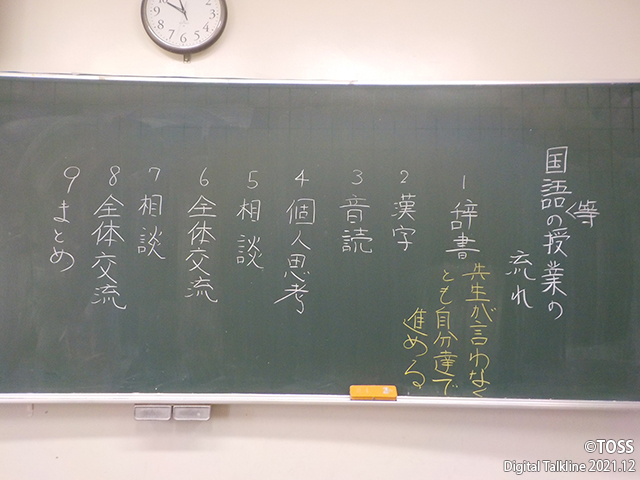 国語等の授業の
流れ
1 辞書
先生が言わなく
とも自分達で
進める
2 漢字
3 音読
4 個人思考
5 相談
6 全体交流
7 相談
8 全体交流
9 まとめ
©TOSS
Digital Talkline 2021.12